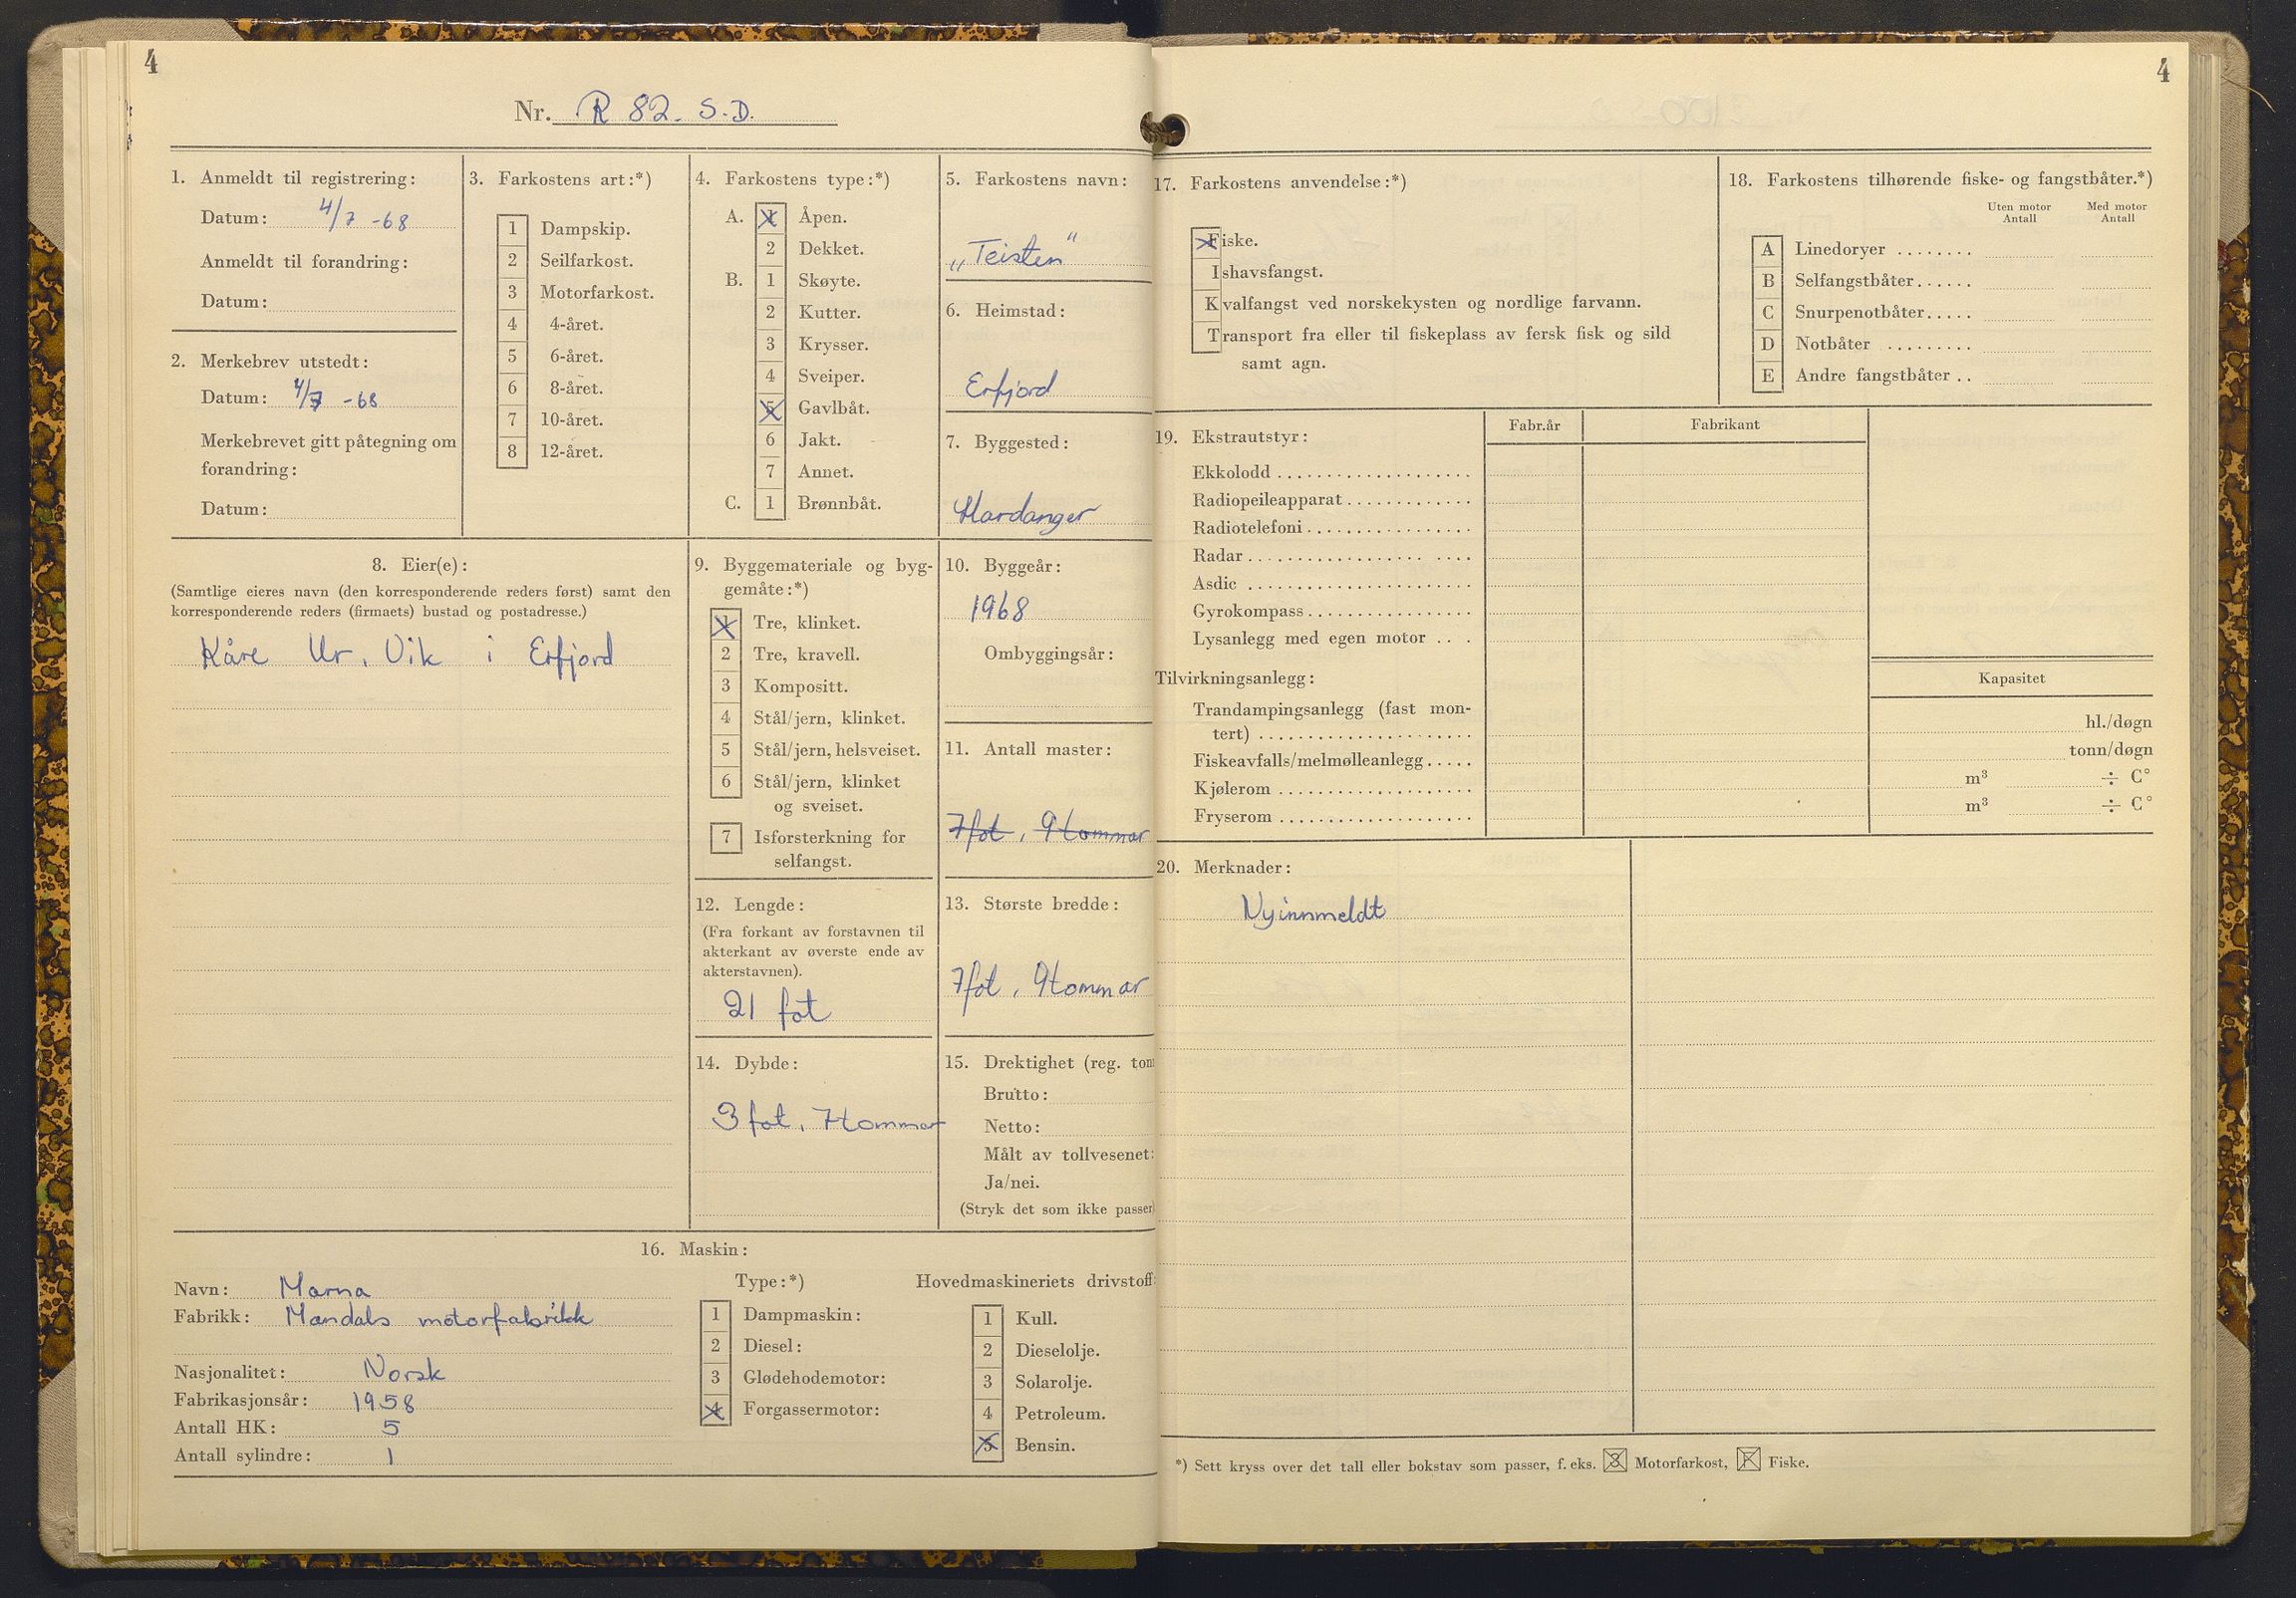 4
Nr. R 82. S.D.
1. Anmeldt til registrering:
Datum: 4/7 -68
Anmeldt til forandring:
Datum:
2. Merkebrev utstedt:
Datum: 4/7 -68
Merkebrevet gitt påtegning om
forandring:
Datum:
3. Farkostens art:*)
1 Dampskip.
2 Seilfarkost.
3 Motorfarkost.
4 4-året.
5 6-året.
6 8-året.
7 10-året.
8 12-året.
4. Farkostens type:*)
A. 1 Åpen.
2 Dekket.
B. 1 Skøyte.
2 Kutter.
3 Krysser.
4 Sveiper.
5 Gavlbåt.
6 Jakt.
7 Annet.
C. 1 Brønnbåt.
5. Farkostens navn:
„Teisten"
6. Heimstad:
Erfjord
7. Byggested:
Hardanger
8. Eier(e):
(Samtlige eieres navn (den korresponderende reders først) samt den
korresponderende reders (firmaets) bustad og postadresse.)
Kåre Ur. Vik i Erfjord
9. Byggemateriale og byg-
gemåte:*)
1 Tre, klinket.
2 Tre, kravell.
3 Kompositt.
4 Stål/jern, klinket.
5 Stål/jern, helsveiset.
6 Stål/jern, klinket
og sveiset.
7 Isforsterkning for
selfangst.
10. Byggeår:
1968
Ombyggingsår:
11. Antall master:
7 fot, 9 tommar
12. Lengde:
(Fra forkant av forstavnen til
akterkant av øverste ende av
akterstavnen).
21 fot
13. Største bredde:
7 fot, 9 tommar
14. Dybde:
3 fot, 7 tommar
15. Drektighet (reg. ton
Brutto:
Netto:
Målt av tollvesenet:
Ja/nei.
(Stryk det som ikke passer
16. Maskin:
Navn: Marna
Fabrikk: Mandals motorfabrikk
Nasjonalitet: Norsk
Fabrikasjonsår: 1958
Antall HK: 5
Antall sylindre: 1
Type:*)
1 Dampmaskin:
2 Diesel:
3 Glødehodemotor:
4 Forgassermotor:
Hovedmaskineriets drivstoff:
1 Kull.
2 Dieselolje.
3 Solarolje.
4 Petroleum.
5 Bensin.
4
17. Farkostens anvendelse:*)
Fiske.
Ishavsfangst.
Kvalfangst ved norskekysten og nordlige farvann.
Transport fra eller til fiskeplass av fersk fisk og sild
samt agn.
18. Farkostens tilhørende fiske- og fangstbåter.*)
Uten motor Antall
Med motor Antall
A Linedoryer ........
B Selfangstbåter......
C Snurpenotbåter.....
D Notbåter .........
E Andre fangstbåter ..
19. Ekstrautstyr:
Fabr.år
Fabrikant
Ekkolodd ....................
Radiopeileapparat .............
Radiotelefoni .................
Radar .................. ....
Asdic .......................
Gyrokompass .................
Lysanlegg med egen motor ...
Tilvirkningsanlegg:
Kapasitet
Trandampingsanlegg (fast mon-
tert) ...................... hl./døgn
Fiskeavfalls/melmølleanlegg ..... tonn/døgn
Kjølerom .................... m³ ÷ C°
Fryserom .................... m³ ÷ C°
20. Merknader:
Nyinnmeldt
*) Sett kryss over det tall eller bokstav som passer, f. eks. 3 Motorfarkost, F Fiske.